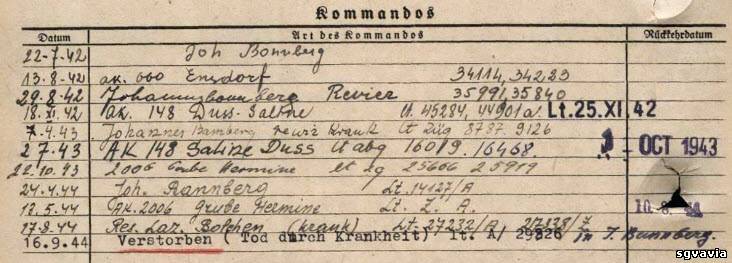 Kommandos
Datum Art des Kommandos Rückkehrdatum
22-7-42 Joh Bannberg
13.8-42 ak. 600 Ensdorf 34114, 34283
29.8-42 Johannisbannberg Revier 35991, 35840
18.XI.42 ak. 148 Duss-Saline lt. 45284, 44901a. Lt. 25.XI.42
7.4.43 Johannes Bamberg krank lt Züg 8787. 9126
2 7.43 AK 148 Saline Duss lt abg 16019. 16468. OCT 1943
22.10.43 2006 Grube Hermine 25606 25919
24.4.44 Joh. Bannberg Lt. 14127/A
13.5.44 AK. 2006 Grube Hermine Lt. Z. A. 10.8.
17.8.44 Res. Laz. Bolchen (krank) Lt. 27232/A 27138/Z
16.9.44 Verstorben ( Tod durch Krankheit) lt. A/ 29826 in J. Bannberg.
sgvavia